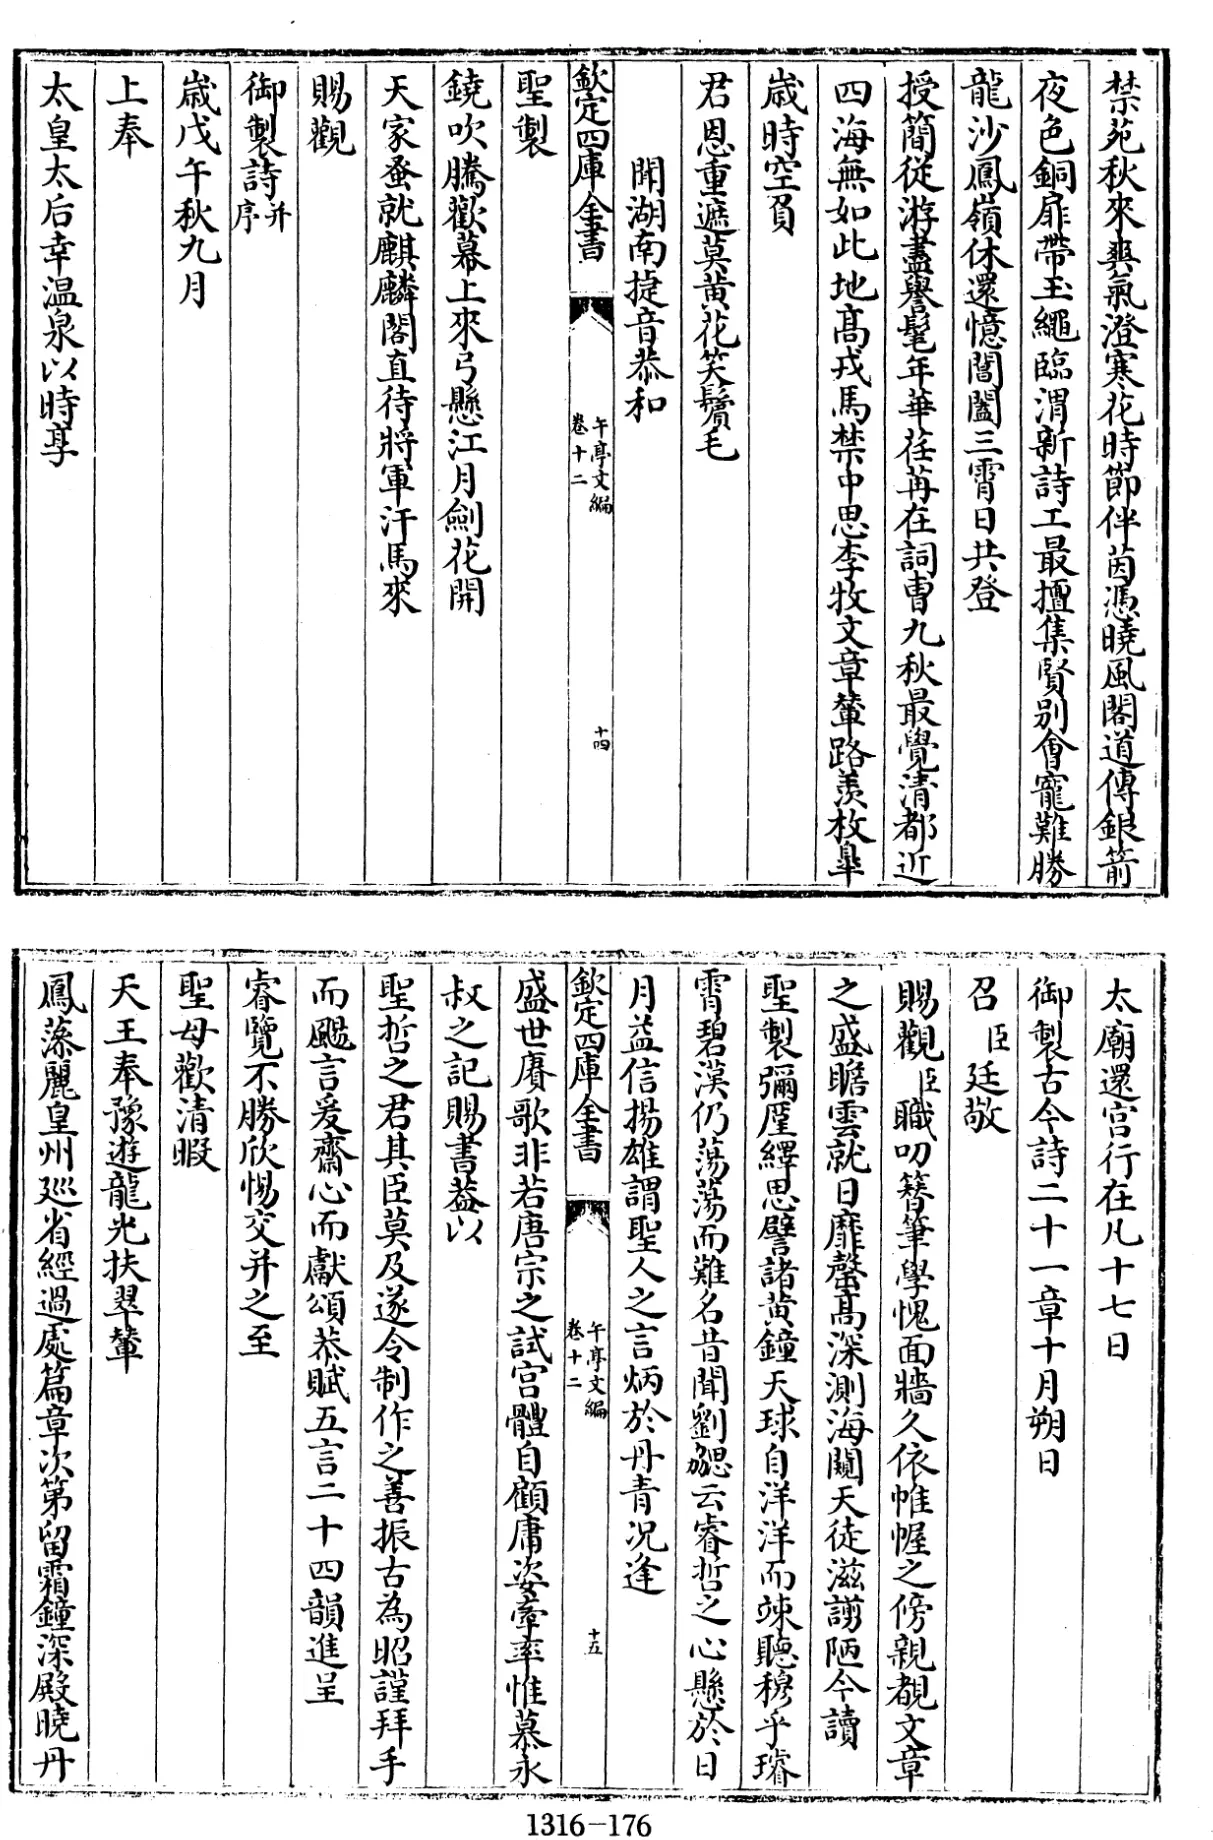 禁苑秋來爽氣澄寒花時節伴茵憑曉風閣道傳銀箭
夜色銅扉帶玉繩臨渭新詩工最擅集賢别會寵難勝
龍沙鳳嶺休還憶閶闔三霄日共登
授簡從游盡譽髦年華荏苒在詞曹九秋最覺清都近
四海無如此地高戎馬禁中思李牧文章輦路羨枚臯
歳時空負
君恩重遮莫黄花笑鬢毛
聞湖南捷音恭和
欽定四庫全書
午亭文編
卷十二
十四
聖製
鐃吹騰歡幕上來弓懸江月劍花開
天家蚤就麒麟閣直待將軍汗馬來
賜觀
御製詩并序
歳戊午秋九月
上奉
太皇太后幸温泉以時享
太廟還宫行在凡十七日
御製古今詩二十一章十月朔日
召臣廷敬
賜觀臣職叨簪筆學愧面牆久依帷幄之傍親覩文章
之盛瞻雲就日靡罄高深測海闚天徒滋謭陋今讀
聖製彌厪繹思譬諸黄鐘天球自洋洋而竦聽穆乎璿
霄碧漢仍蕩蕩而難名昔聞劉勰云睿哲之心懸於日
月益信揚雄謂聖人之言炳於丹青况逢
欽定四庫全書
午亭文編
卷十二
十五
盛世賡歌非若唐宗之試宫體自顧庸姿牽率惟慕永
叔之記賜書葢以
聖哲之君其臣莫及遂令制作之善振古為昭謹拜手
而颺言爰齋心而獻頌恭賦五言二十四韻進呈
睿覽不勝欣惕交并之至
聖母歡清暇
天王奉豫遊龍光扶翠輦
鳳藻麗皇州廵省經過處篇章次第留霜鐘深殿曉丹
1316-176